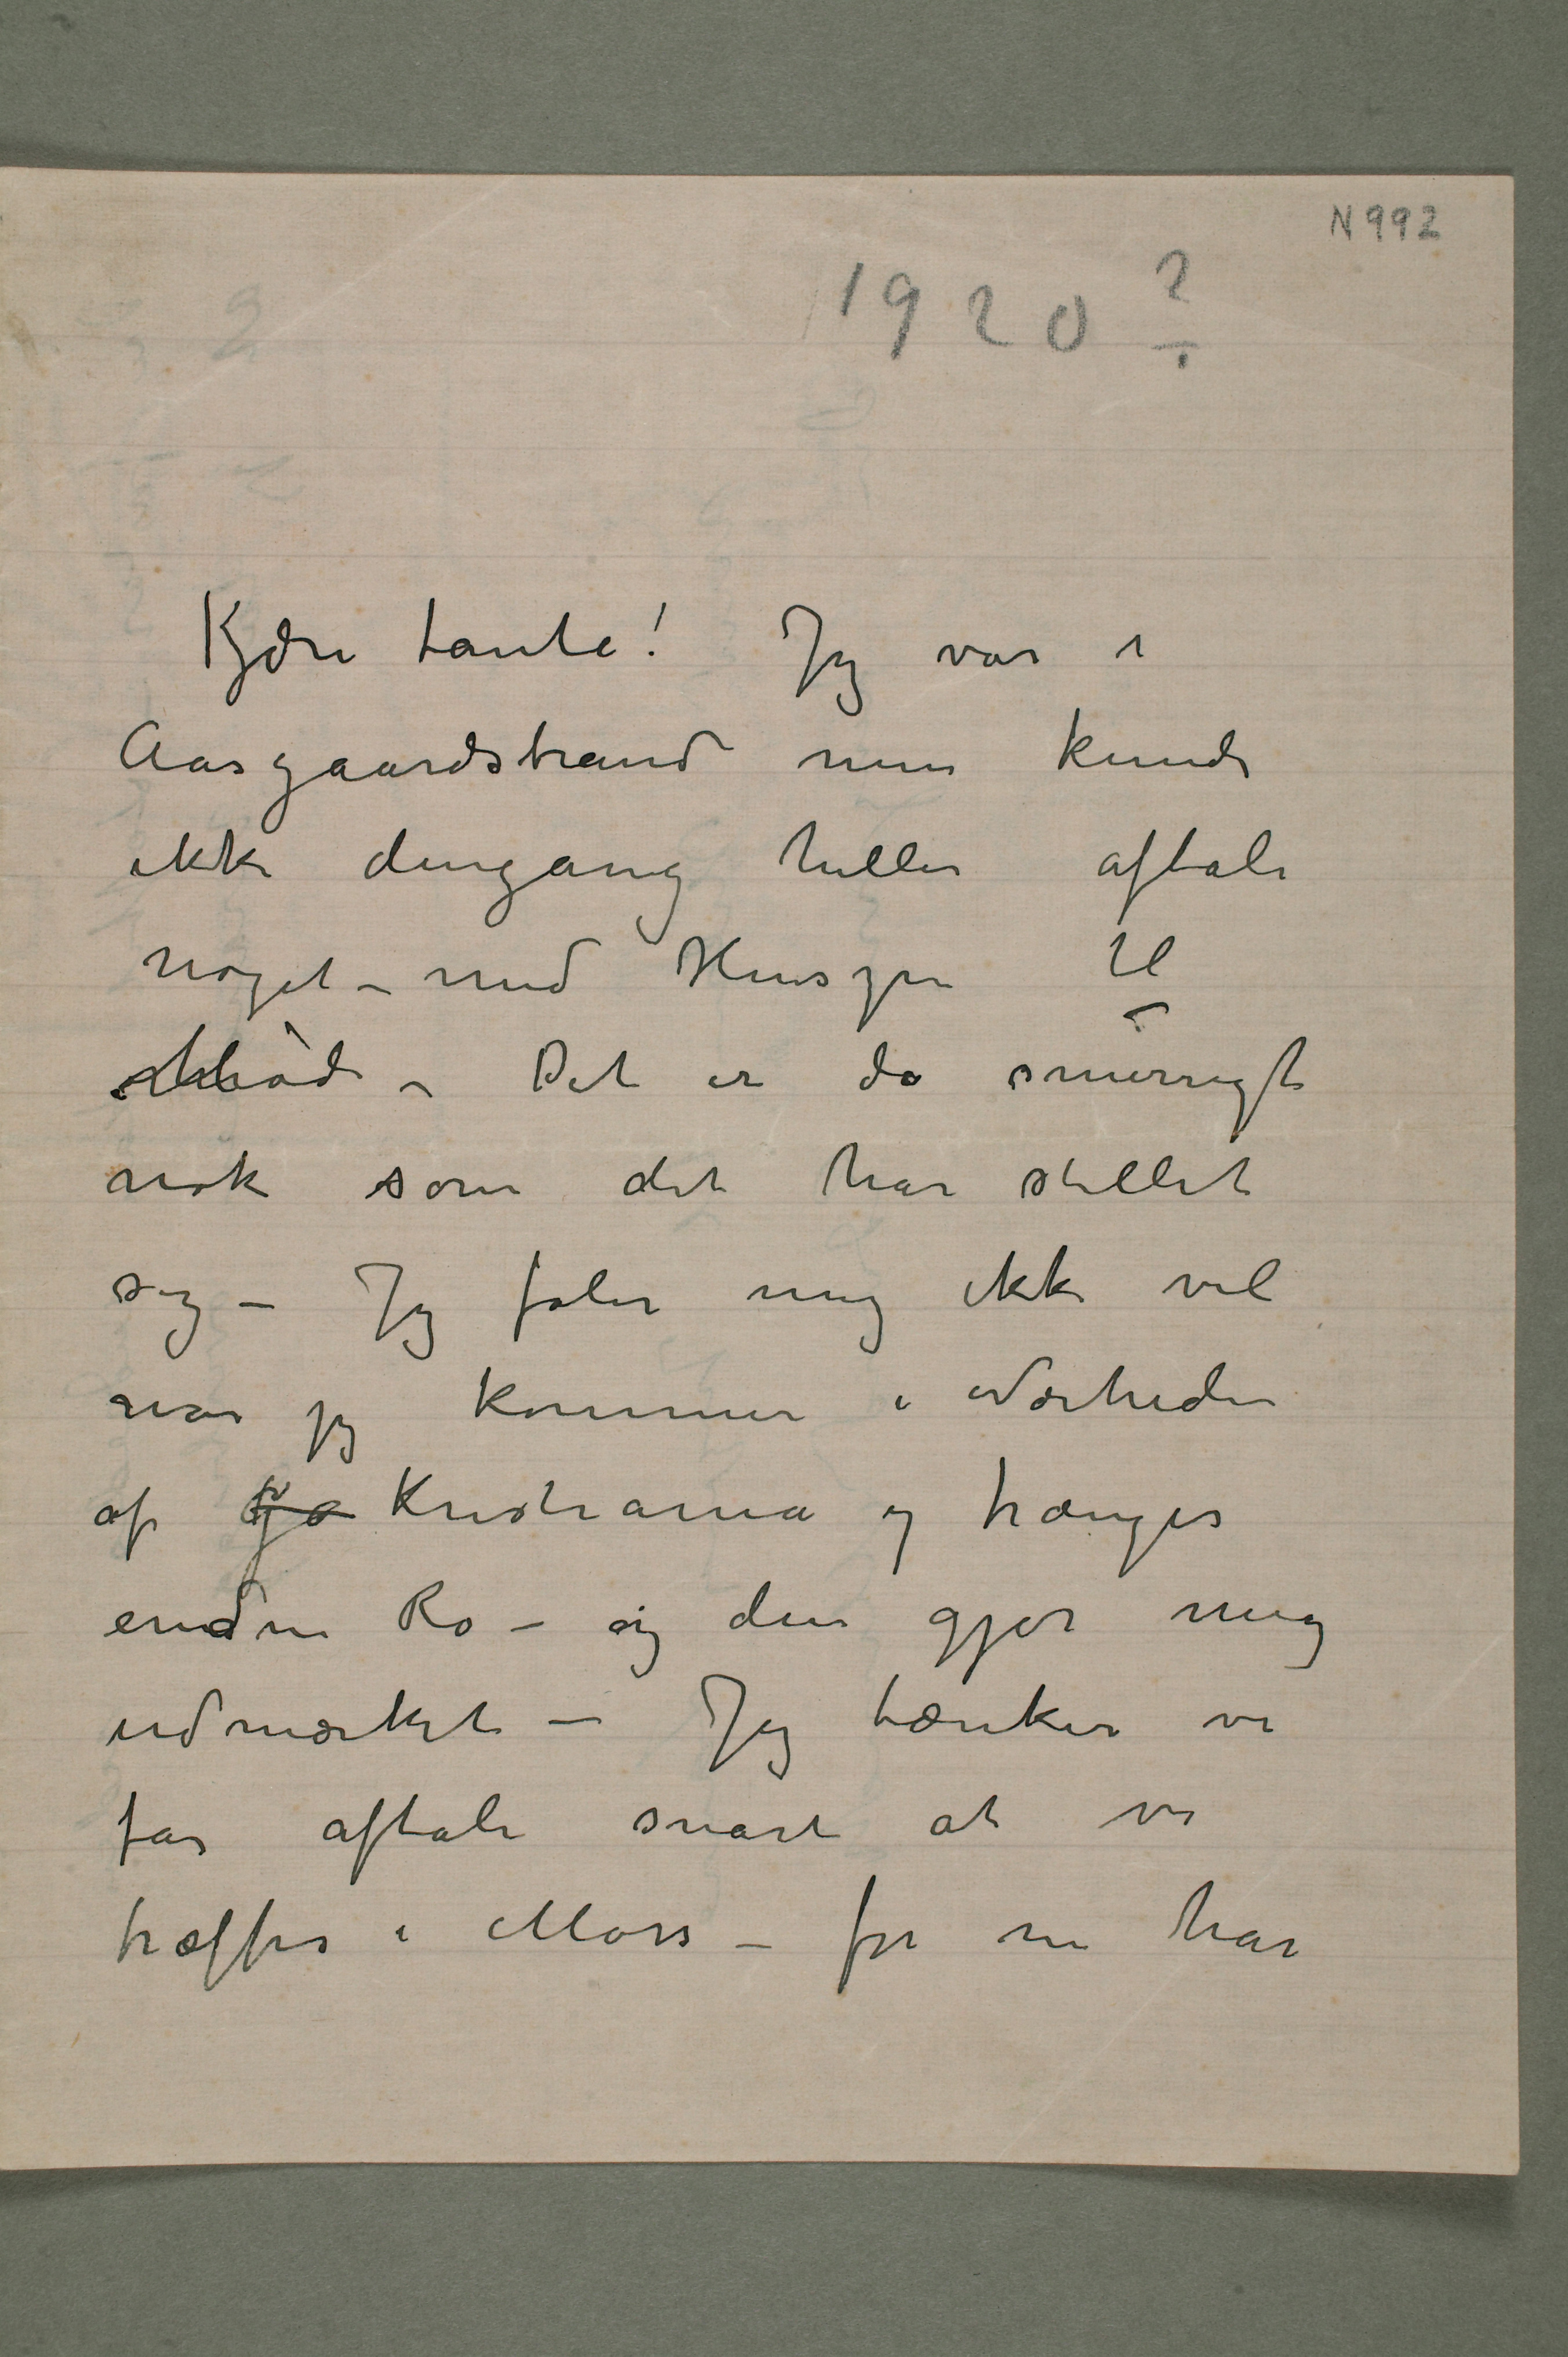 N 992
1920?
Kjære tante! Jeg var i
Aasgaardstrand men kunde
ikke dengang heller aftale
noget – med Hensyn til
Møde – Det er da snurrigt
nok som det har stillet
sig – Jeg føler mig ikke vel
når jeg kommer i Nærheden
af Kristiania og trænges
endnu Ro – og den gjør mig
udmærket – Jeg tænker vi
får aftale snart at vi
træffes i Moss – for nu har